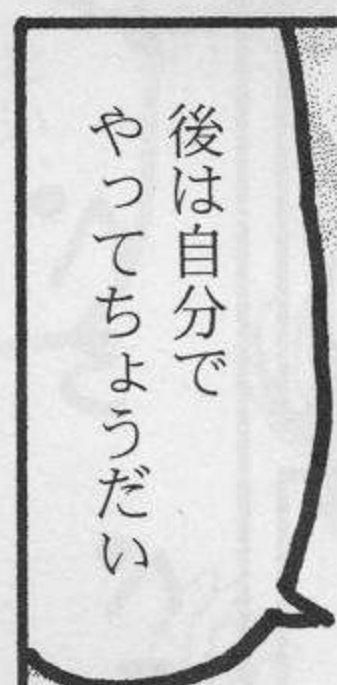 後は自分で
やってちょうだい